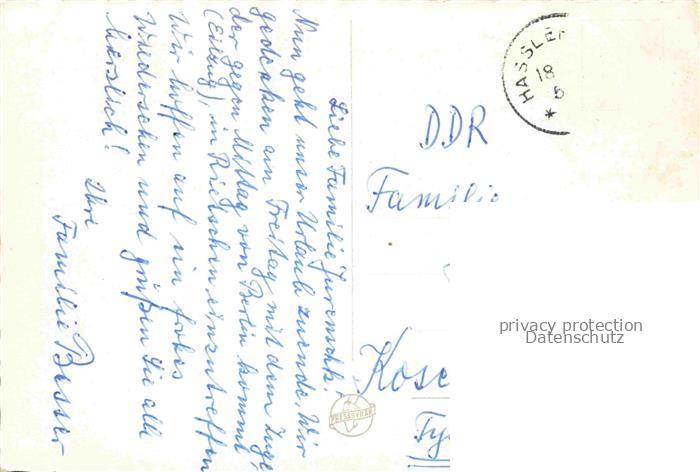 Liebe Familie Jurenchk!
Nun geht unser Urlaub zuende. Wir
gedenken am Freitag mit dem Zuge,
der gegen Mittag von Berlin kommt
(Eilzug), in Rietschen einzutreffen
Wir hoffen auf ein frohes
Wiedersehen und grüßen Sie alle
herzlich!
Ihre
Familie Besser
HASSLE
18
5
DDR
Familie
Kose
PRESSBYRÅN
privacy protection
Datenschutz